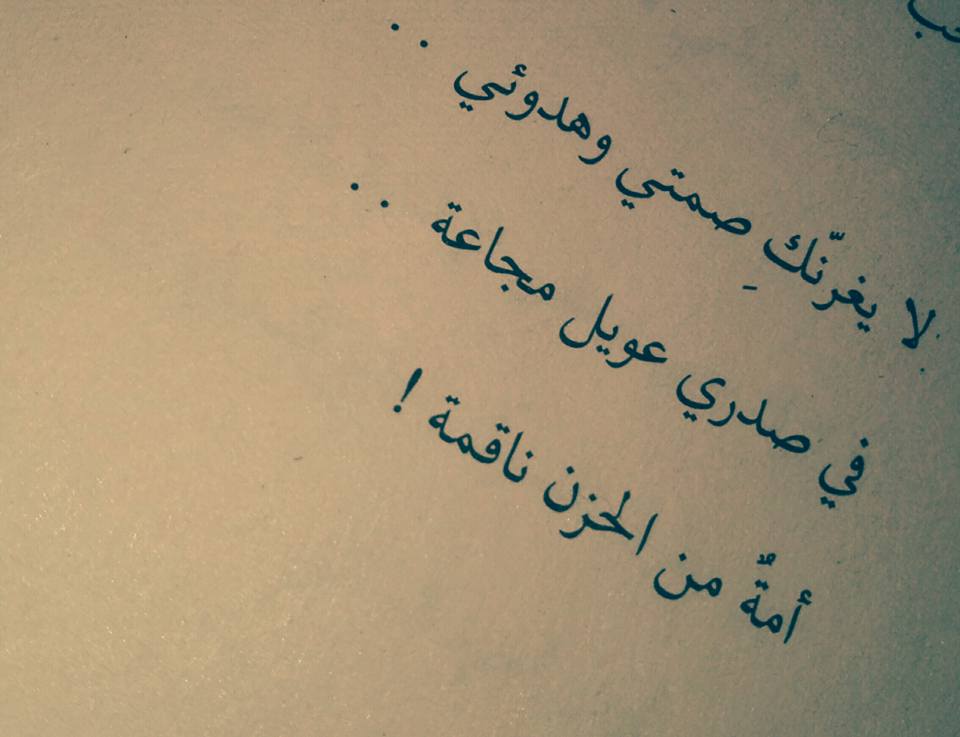 لا يغرنّكِ صمتي وهدوئي ..
في صدري عويل مجاعة ..
أمةٌ من الحزن ناقمة !